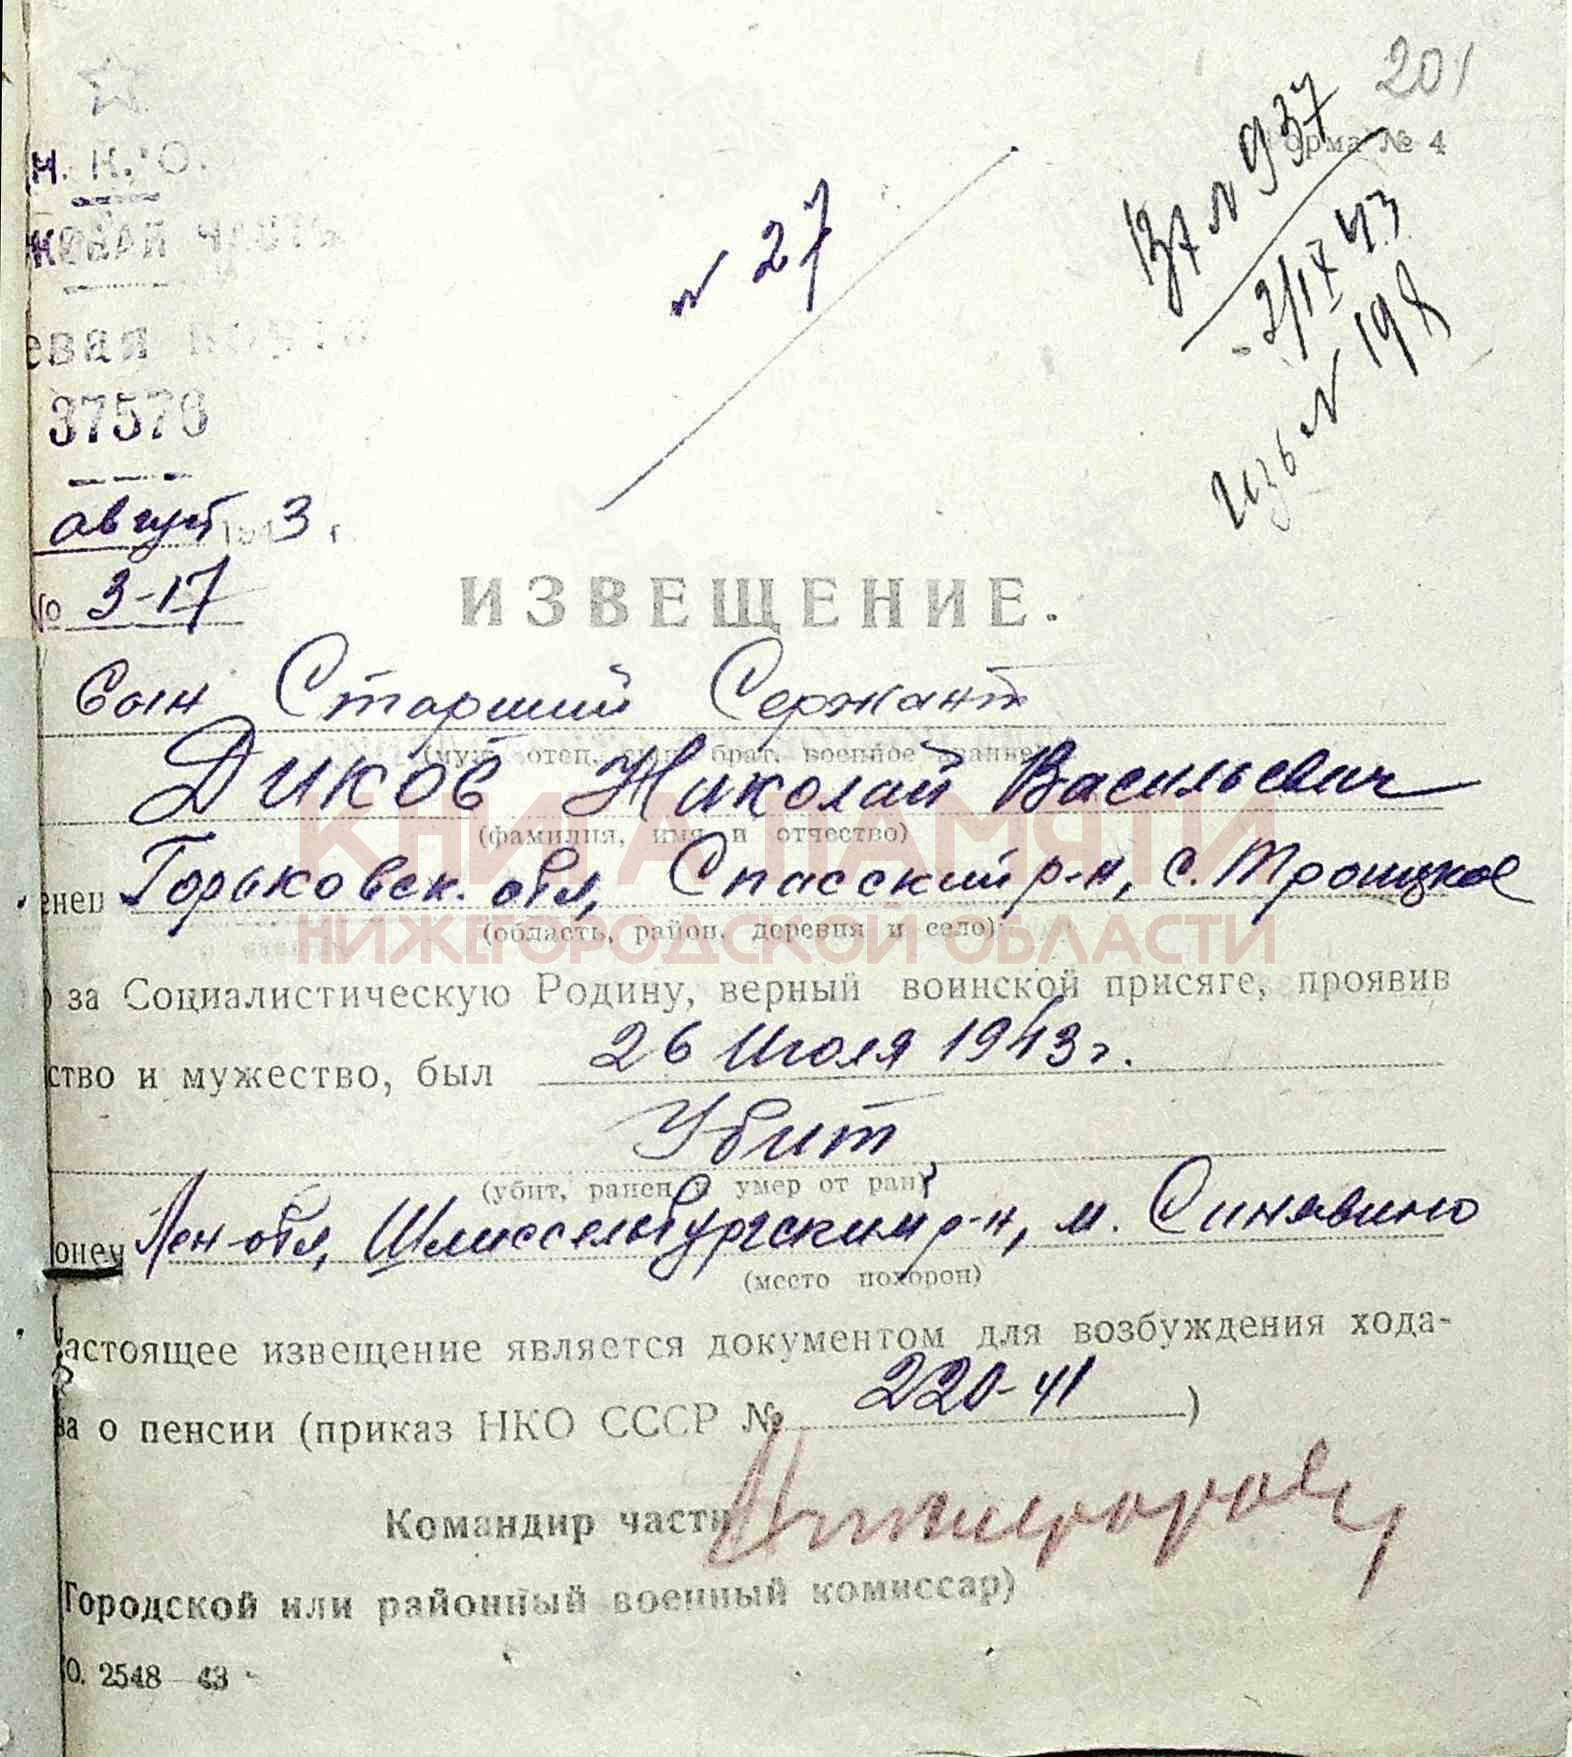 201
Форма № 4
Н. К. О.
евая почта
37576
№ 27
№ 937
2/IX 43
№ 198
август 1943 г.
№ 3-17
ИЗВЕЩЕНИЕ.
сын Старший Сержант
(муж, отец, сын, брат, военное звание)
Диков Николай Васильевич
(фамилия, имя и отчество)
КНИГА ПАМЯТИ
женец Горьковск. обл, Спасский р-н, с. Троицкое
(область, район, деревня и село)
НИЖЕГОРОДСКОЙ ОБЛАСТИ
за Социалистическую Родину, верный воинской присяге, проявив
ство и мужество, был 26 Июля 1943 г.
Убит
(убит, ранен и умер от ран)
онен Лен-обл, Шлиссельбургский р-н, м. Синявино
(место похорон)
Настоящее извещение является документом для возбуждения хода-
ва о пенсии (приказ НКО СССР № 220-41)
Командир части
Городской или районный военный комиссар)
О. 2548—43